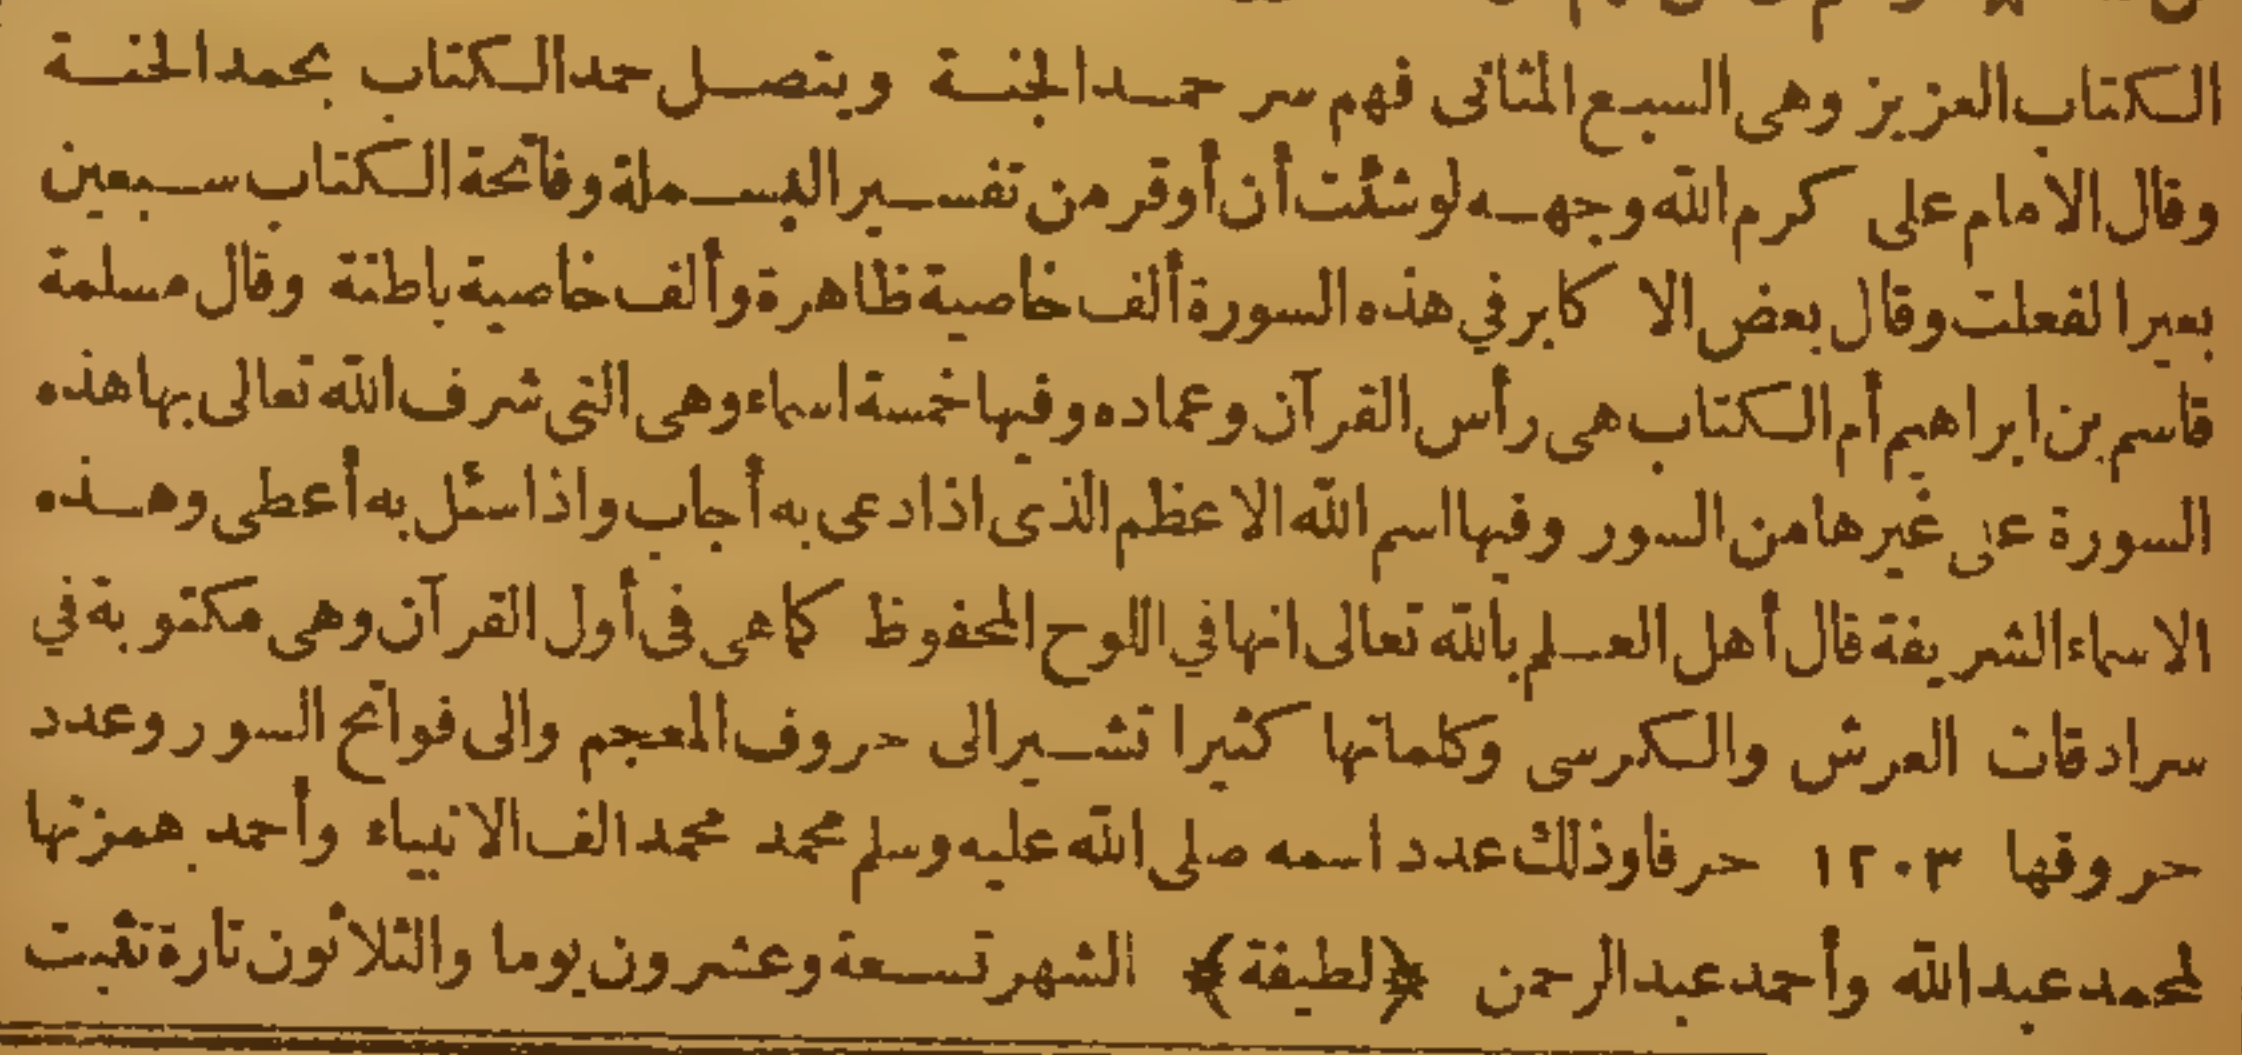 الكتاب العزيز وهى السبع المثانى فهم سر حمد الجنة ويتصل حمد الكتاب بحمد الجنة
وقال الامام على كرم الله وجهه لو شئت أن أوقر من تفسير البسملة وفاتحة الكتاب سبعين
بعيرا لفعلت وقال بعض الا كابر في هذه السورة ألف خاصية ظاهرة وألف خاصية باطنة وقال مسلمة
قاسم بن ابراهيم أم الكتاب هى رأس القرآن وعماده وفيها خمسة اسماء وهى التى شرف الله تعالى بها هذه
السورة على غيرها من السور وفيها اسم الله الاعظم الذى اذا دعى به أجاب واذا سئل به أعطى وهذه
الاسماء الشريفة قال أهل العلم بالله تعالى انها في اللوح المحفوظ كما هى فى أول القرآن وهى مكتوبة في
سرادقات العرش والكرسى وكلماتها كثيرا تشير الى حروف المعجم والى فواتح السور وعدد
حروفها ١٢٠٣ حرفا وذلك عدد اسمه صلى الله عليه وسلم محمد محمد الف الانبياء وأحمد همزتها
لمحمد عبد الله وأحمد عبد الرحمن ﴿لطيفة﴾ الشهر تسعة وعشرون يوما والثلاثون تارة تثبت